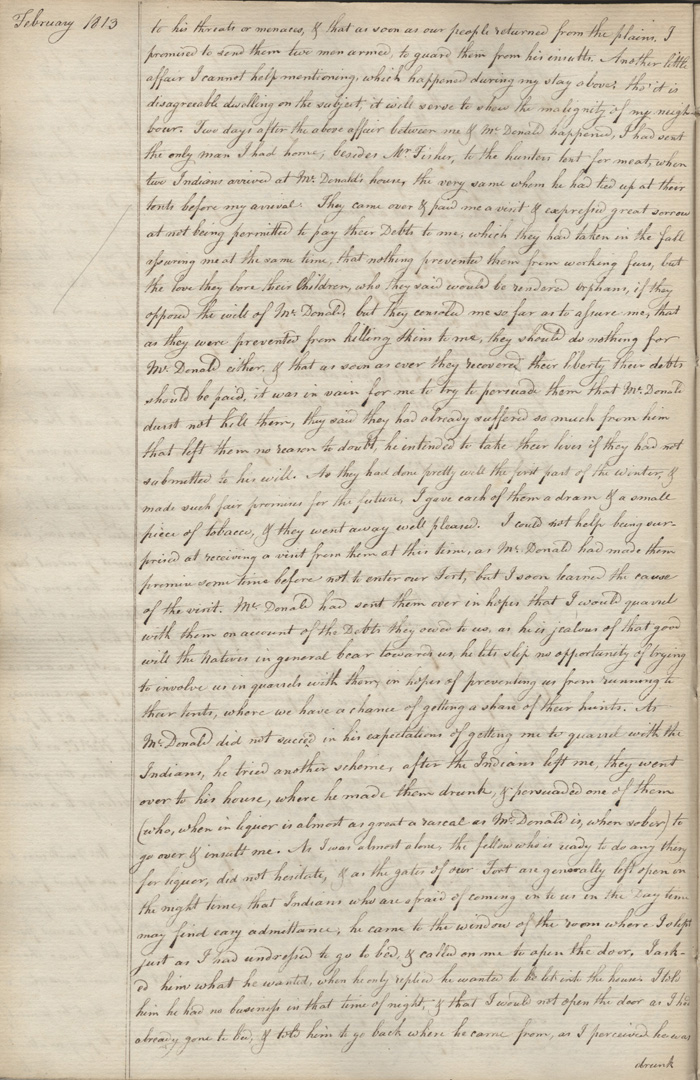 February 1813
to his threats or menaces, & that as soon as our people returned from the plains, I
promised to send them two men armed, to guard them from his insults. Another little
affair I cannot help mentioning, which happened during my stay above; tho' it is
disagreeable dwelling on the subject, it will serve to shew the malignity of my neigh-
bour. Two days after the above affair between me & Mr. Donald happened, I had sent
the only man I had home, besides Mr. Fisher, to the hunters tent for meat, when
two Indians arrived at Mc.Donald's house, the very same whom he had tied up at their
tents before my arrival. They came over & paid me a visit & expressed great sorrow
at not being permitted to pay their Debts to me, which they had taken in the fall
assuring me at the same time, that nothing prevented them from working furs, but
the love they bore their Children, who they said would be rendered orphans, if they
opposed the will of Mc.Donald, but they consoled me so far as to assure me, that
as they were prevented from killing skins to me, they should do nothing for
Mc.Donald either, & that as soon as ever they recovered their liberty their debts
should be paid, it was in vain for me to try to persuade them that Mc.Donald
durst not kill them, they said they had already suffered so much from him
that left them no reason to doubt, he intended to take their lives if they had not
submitted to his will. As they had done pretty well the first part of the winter, &
made such fair promises for the future, I gave each of them a dram & a small
piece of tobacco, & they went away well pleased. I could not help being sur-
prised at receiving a visit from them at this time, as Mc.Donald had made them
promise some time before not to enter our Fort, but I soon learned the cause
of the visit. Mc.Donald had sent them over in hopes that I would quarrel
with them on account of the Debts they owed to us, as he is jealous of that good
will the Natives in general bear towards us, he lets slip no opportunity of trying
to involve us in quarrels with them, in hopes of preventing us from running to
their tents, where we have a chance of getting a share of their hunts. As
Mc.Donald did not succeed in his expectations of getting me to quarrel with the
Indians, he tried another scheme, after the Indians left me, they went
over to his house, where he made them drunk, & persuaded one of them
(who, when in liquor is almost as great a rascal as Mc.Donald is, when sober) to
go over & insult me. As I was almost alone, the fellow who is ready to do any thing
for liquor, did not hesitate, & as the gates of our Fort are generally left open in
the night time, that Indians who are afraid of coming in to us in the Day time
may find easy admittance, he came to the window of the room where I slept
just as I had undressed to go to bed, & called on me to open the door, I ask-
d him what he wanted, when he only replied he wanted to be let into the house I told
him he had no business in that time of night, & that I would not open the door as I had
already gone to bed, & told him to go back where he came from, as I perceived he was
drunk